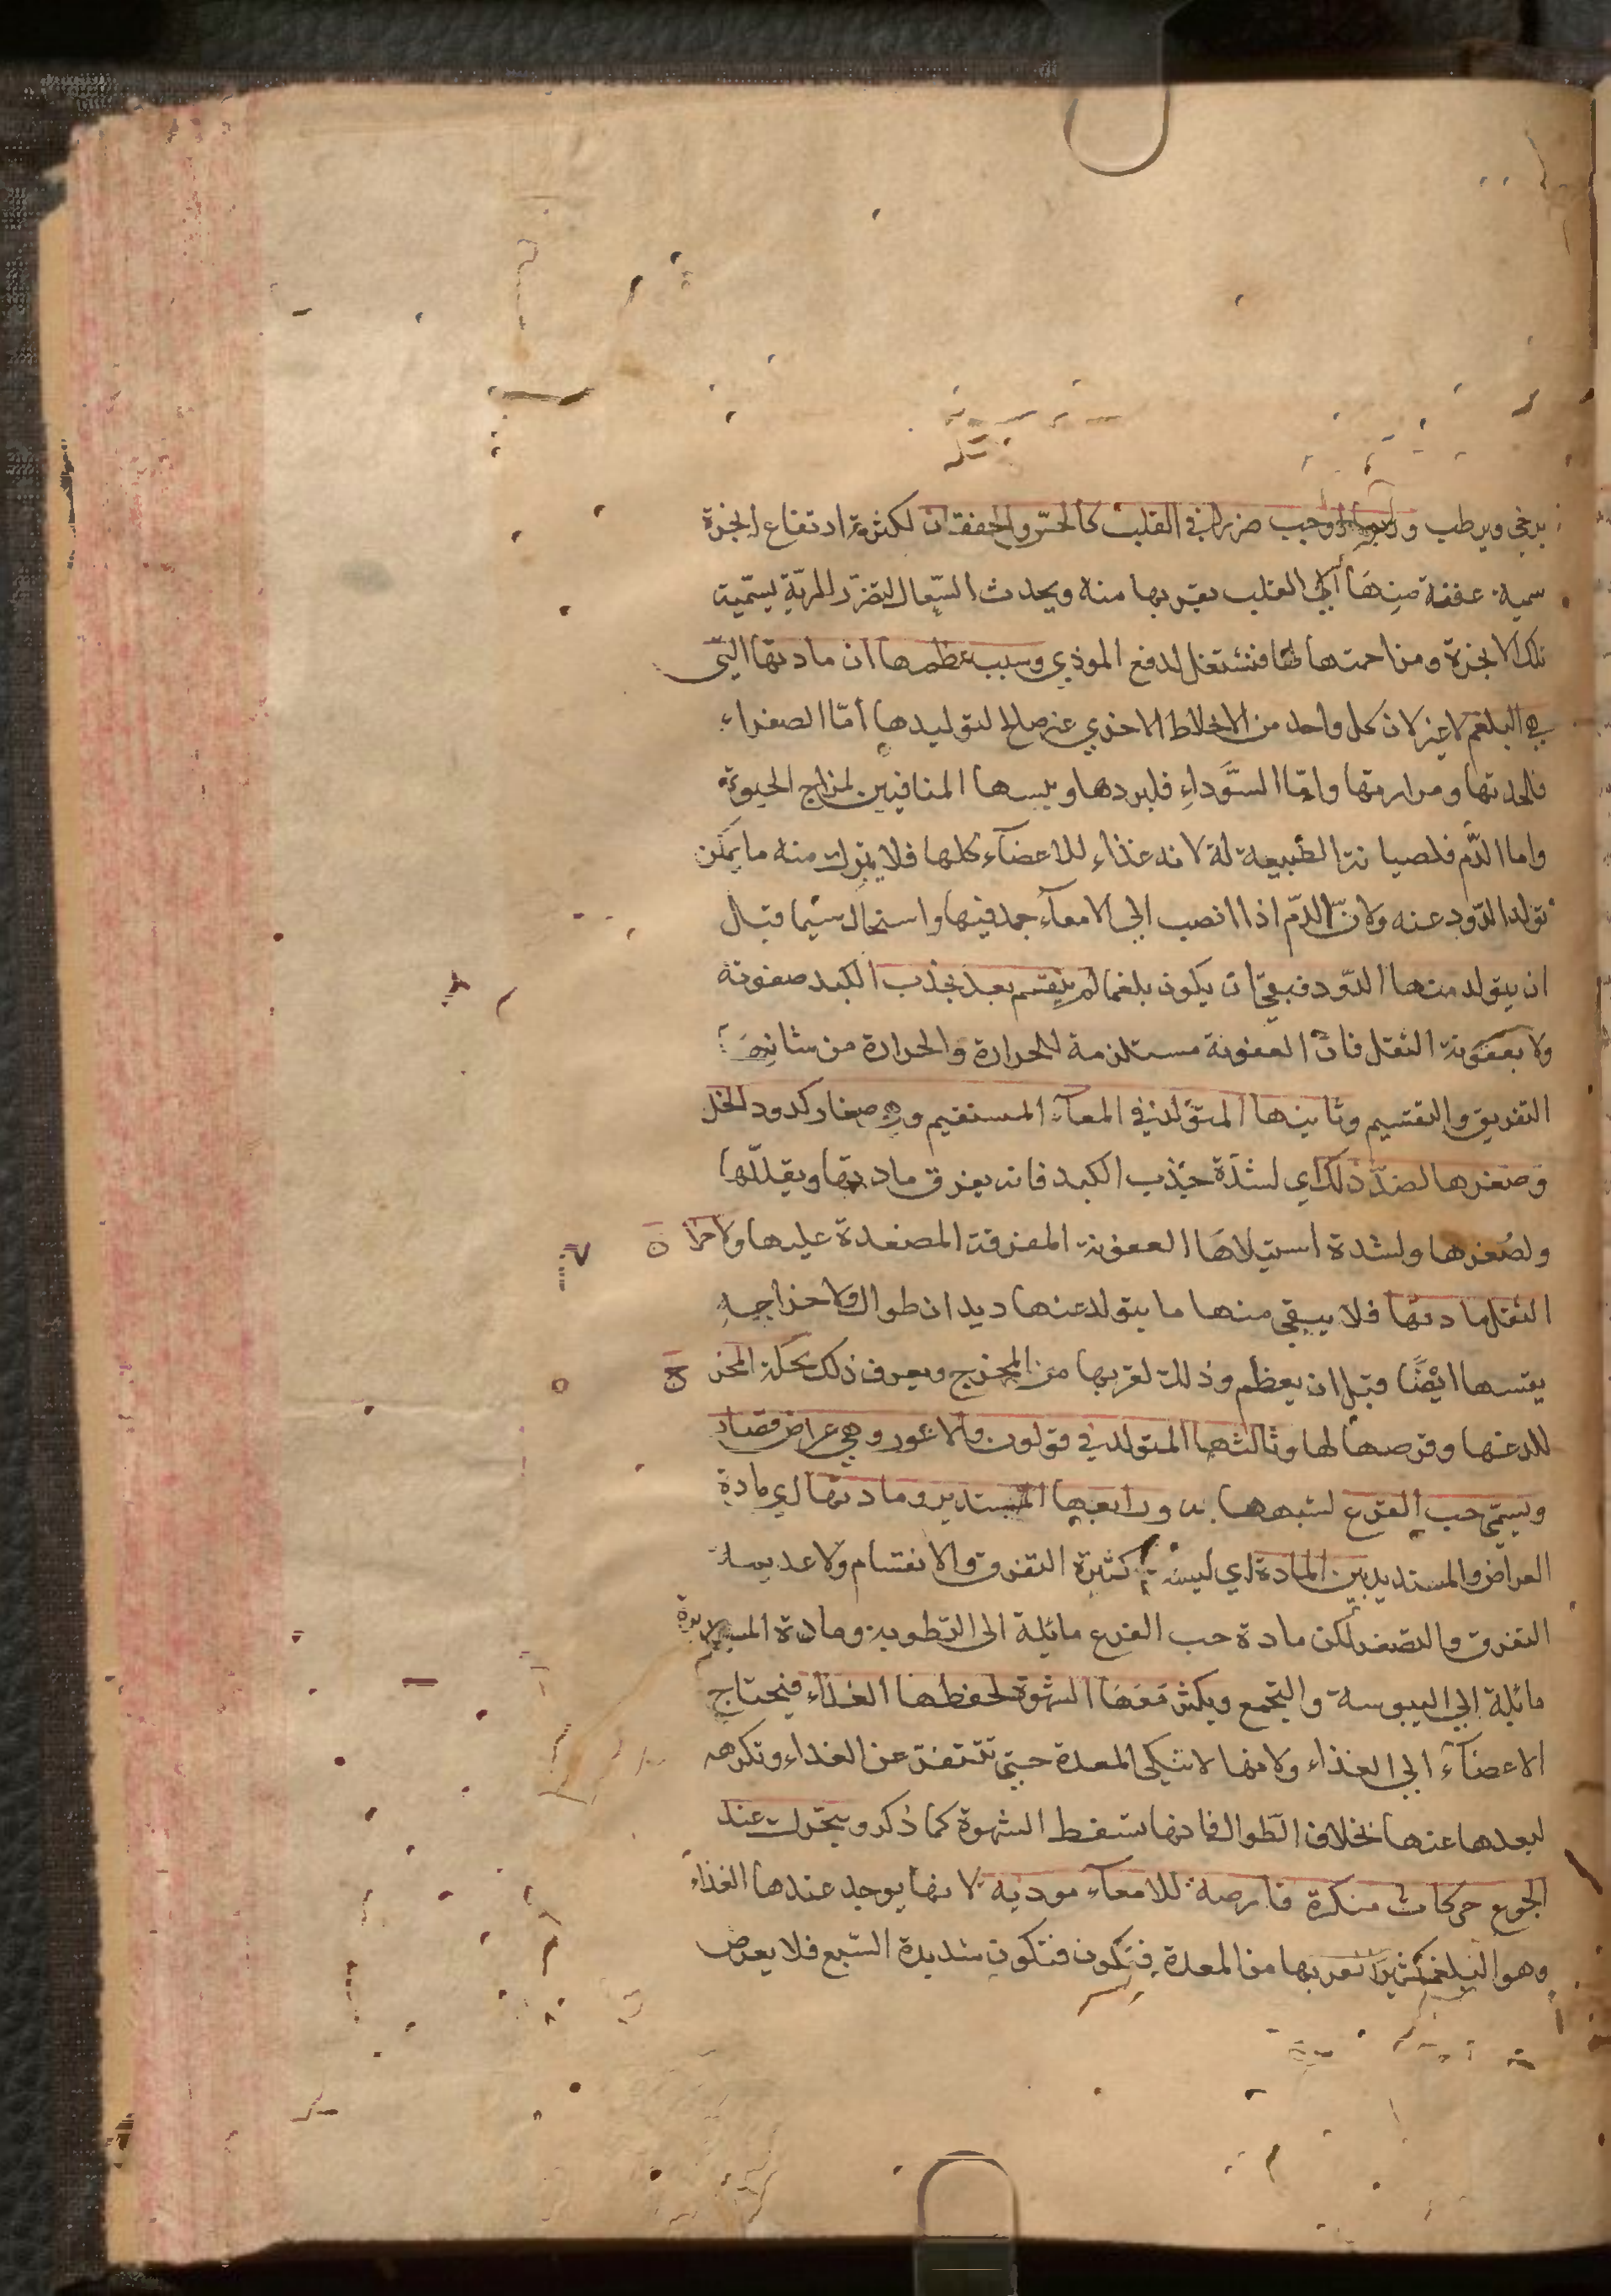 يرخي ويرطب وايضا اوجب ضررا في القلب كالحس والخفقان لكثرة ارتفاع ابخرة
سمية عفنة منها الي القلب بقربها منه ويحدث السعال لتضرر المرية لسمية
تلك الابخرة ومزاحمتها لها فتشتغل لدفع الموذي وسبب عظمها ان مادتها التي
هي البلغم لا غير لان كل واحد من الاخلاط الاخري غير صالح لتوليدها أمّا الصفراء
فلحدتها ومرارتها وامّا السَّوداءِ فلبردها ويبسها المنافيين لمزاج الحيوة
واما الدّم فلصيانة الطبيعة له لانه غذاء للاعضآء كلها فلا يترك منه ما يمكن
تولد الدّود عنه ولانّ الدّم اذا انصب الي الامعآء جمد فيها واستحال سُمّا قبل
ان يتولد منها الدّود فبقي ان يكون بلغما لم ينقسم بعد بجذب الكبد صفوته
ولا بعفونة الثقل فانّ العفونة مستلزمة للحرارة والحرارة من شانها
التفريق والتقسيم وثانيها المتولد في المعآء المستقيم وهي صغار كدود الخل
وَصغرها لضدّ ذلك اي لشدّة جذب الكبد فانه يفرق مادتها ويقللها
ولصُغرها ولشدة استيلاهَا العفونة المفرقة المصغدة عليها ولاخرا
الثقل مادتها فلا يبقي منها ما يتولد عنها ديدان طوال ولاخراجه
يقسها ايضًا قبل ان يعظم وذلك لقربها من المخرج ويعرف ذلك بحكة المخرج
للدغها وقرصها لها وثالثها المتولد في قولون والاعور وهي عراض قصار
ويسمّي حب القرع لشبهها به ورابعها المستدير ومادتها اي مادة
العراض والمستدير بين المادة اي ليست كثيرة التفرق والانقسام ولا عديمة
التفرق والتصغر لكن مادة حب القرع مائلة الى الرّطوبة ومادة المستديرة
مائلة الي اليبوسة والتجمع ويكثر مَعَهَا الشهوة لخطفها الغذآء فيحتاج
الاعضآء الي الغذاء ولانها لا تنكي المعدة حتي تتنفر عن الغذاء وتكرهه
لبعدها عنها بخلاف الطوال فانها تسقط الشهوة كما ذُكر ويتحرك عند
الجوع حركات منكرة قارصة للامعآء موديه لانها يوجد عندها الغذآء
وهو البلغم كثيرا لقربها من المعدة فتكون فتكون شديدة الشبع فلا يعرض